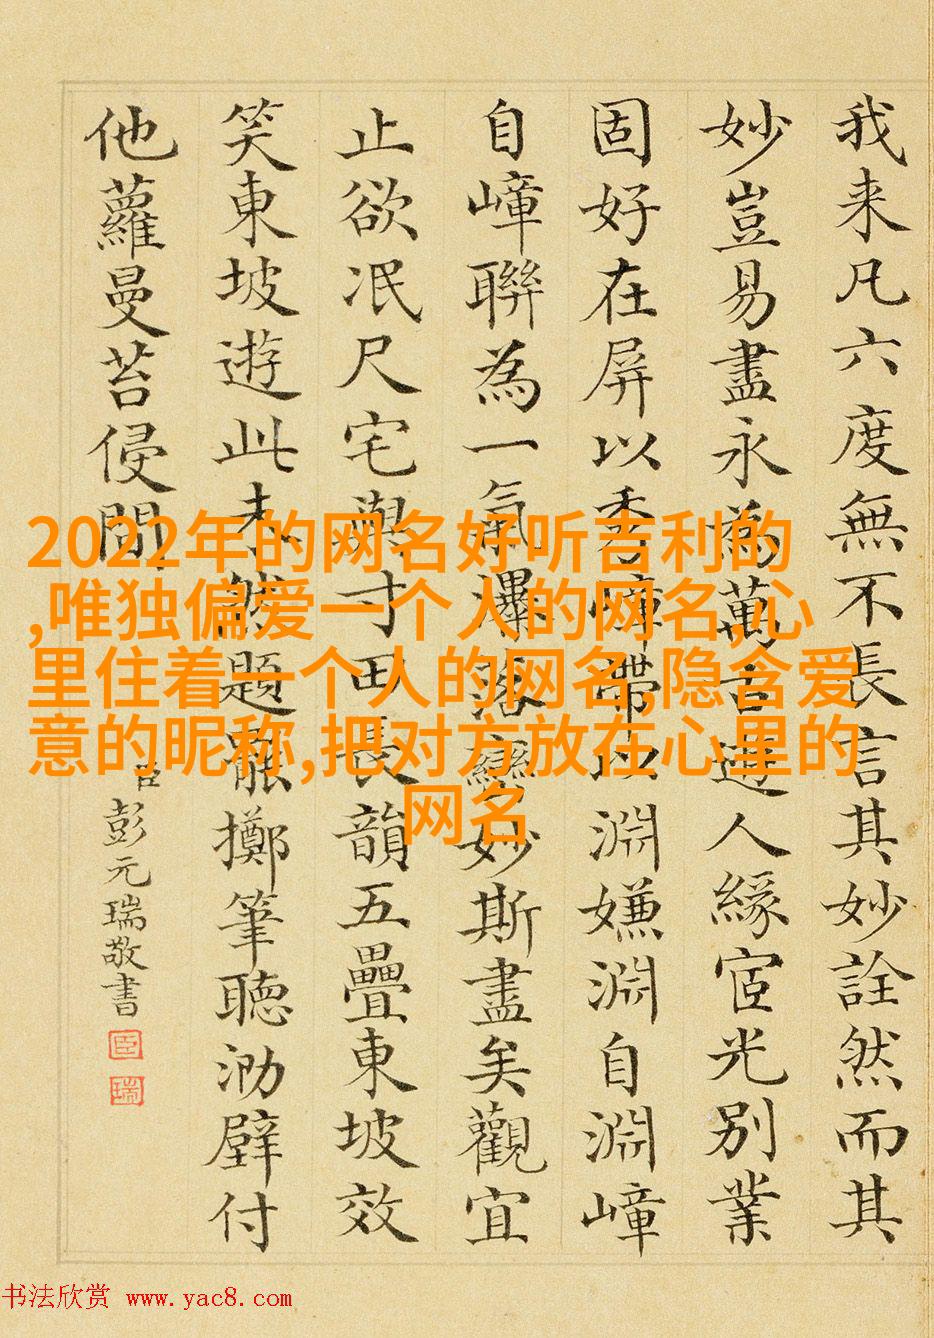 我来凡六度無不長言其妙詮然而其
妙豈易盡永為萬古遊人緣宦光別業
固好在屏以秀嶂帶以淵嫌淵自淵嶂
自嶂聯為一氣瀑妙斯盡矣觀宜
止欲泯尺宅與寸田長韻五疊東坡效
笑東坡遊此未題罷擲筆聽泐壁付
他蘿曼苔侵間
臣彭元瑞敬書
臣
瑞
2022年的网名好听吉利的
,唯独偏爱一个人的网名,心
里住着一个人的网名,隐含爱
意的昵称,把对方放在心里的
网名
书法欣赏 www.yac8.com